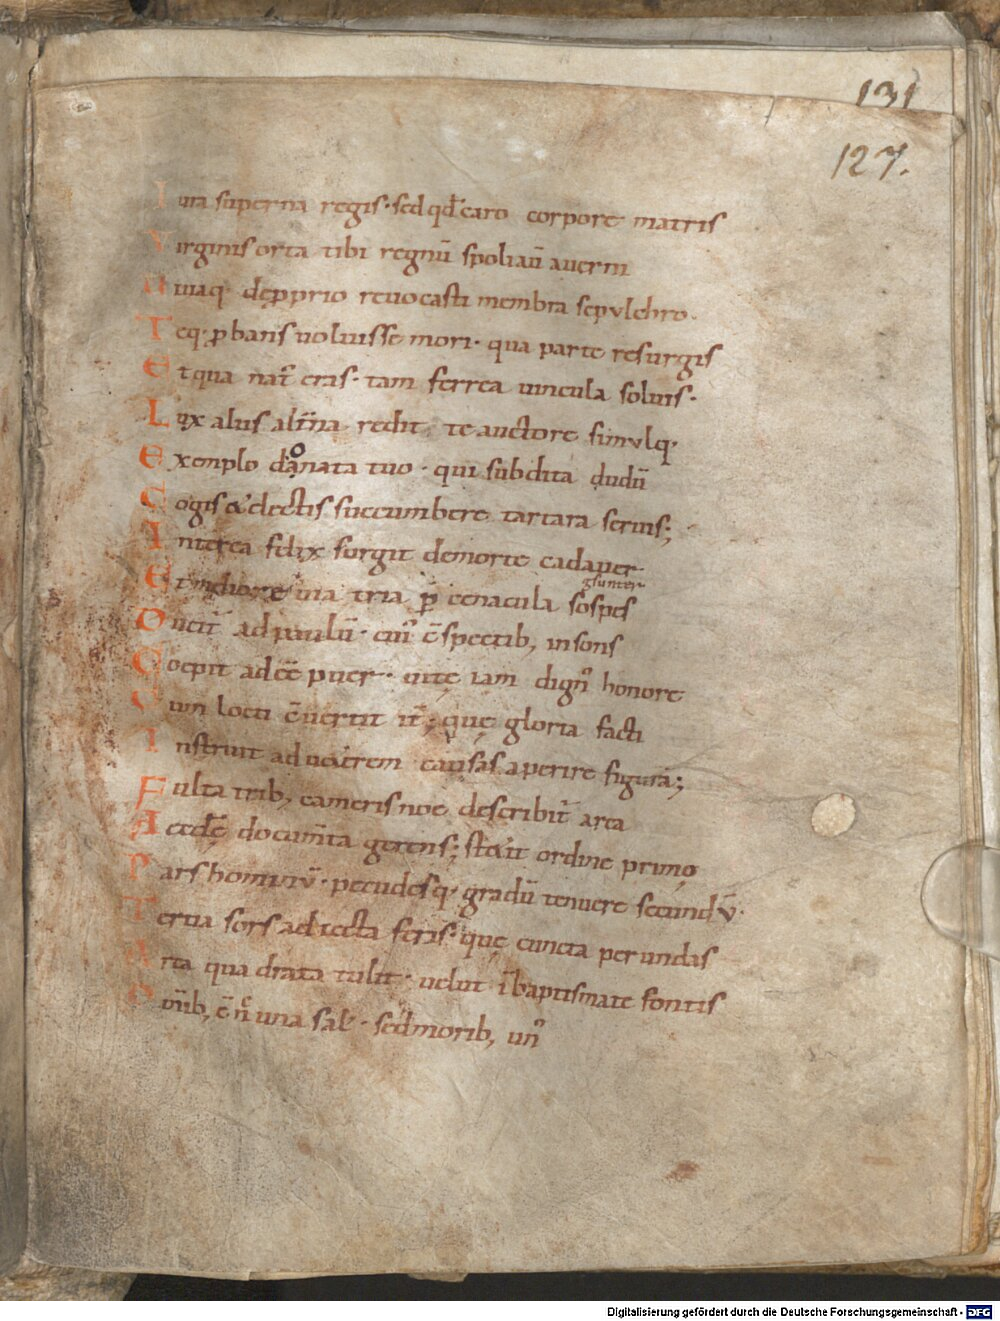 131
127.
Iura superna regis· sed qđ caro corpore matris
Virginis orta tibi regnū spoliaū auerni
Uiuaq· de ꝓprio reuocasti membra sepulchro·
Teq· ꝓbans uoluisse mori· qua parte resurgis
Et qua nat᷒ eras· tam ferrea uincula soluis·
Lex alus alt̄na redit te auctore simulq·
Exemplo dānata tuo· qui subdita dudū
Cogis & electis succumbere tartara seruis;
Interea felix surgit de morte cadauer
gsunter
Et meliore uia tria p̄ cenacula sospes
Ducit᷒ ad paulū· cui᷒ c̄spectib; insons
Coepit adēē puer· uitę iam dign᷒ honore
Cum loeti c̄uertit it᷒; quę gloria facti
Instruit ad ueterem causas aperire figurā;
Fulta trib; cameris noe describit᷒ arca
Aecclę̄ docum̄ta gerens; stetit ordine primo
Pars hominū· pecudesq· gradū tenuere secundū·
Tertia sors adiecta feris· quę cuncta per undas
Arca quadrata tulit· uelut ī baptismate fontis
Om̄ib; ē n̄ una sal᷒· sed morib; un᷒
Digitalisierung gefördert durch die Deutsche Forschungsgemeinschaft - DFG